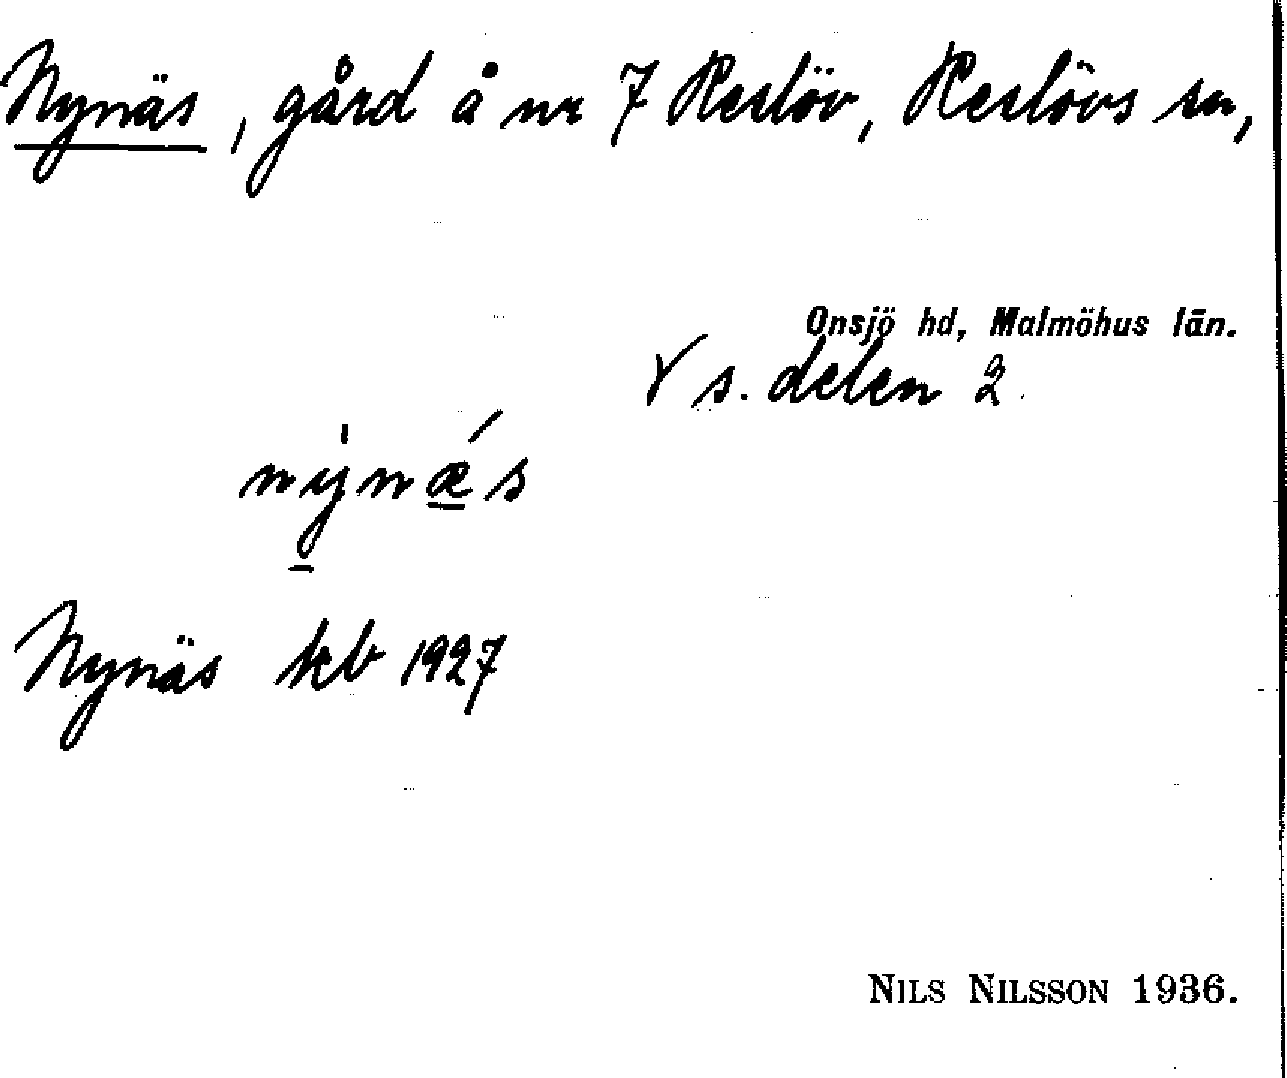 Nynäs, gård å nr 7 Reslöv, Reslövs sn,
Onsjö hd, Malmöhus län.
V s. delen 2.
nynæs
Nynäs kb 1927
NILS NILSSON 1936.